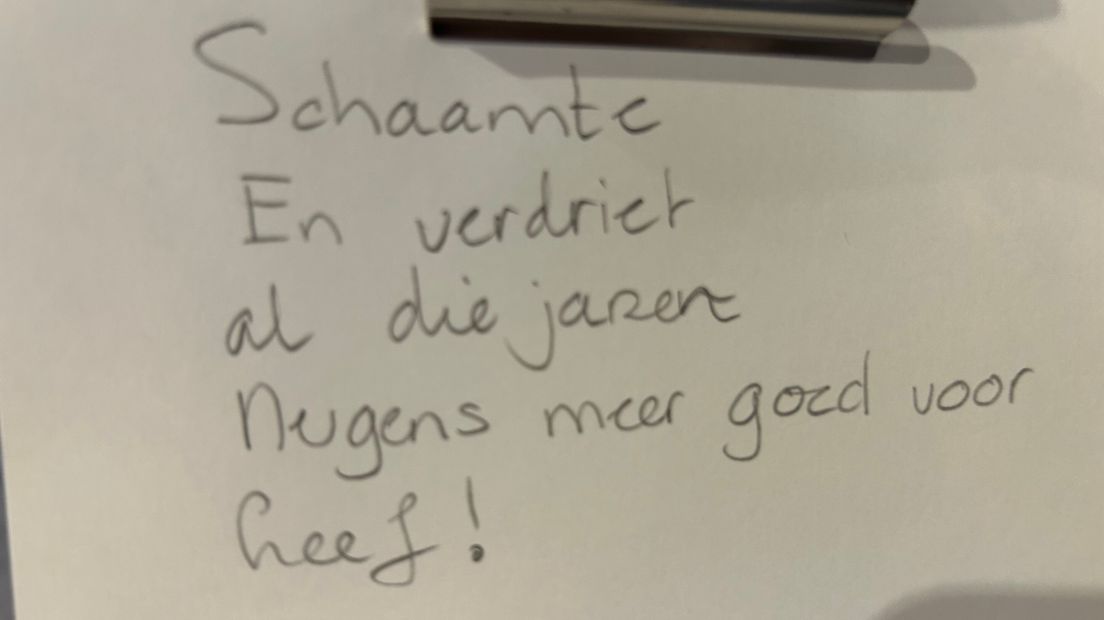 Schaamte
En verdriet
al die jaren
Nergens meer goed voor
heef!